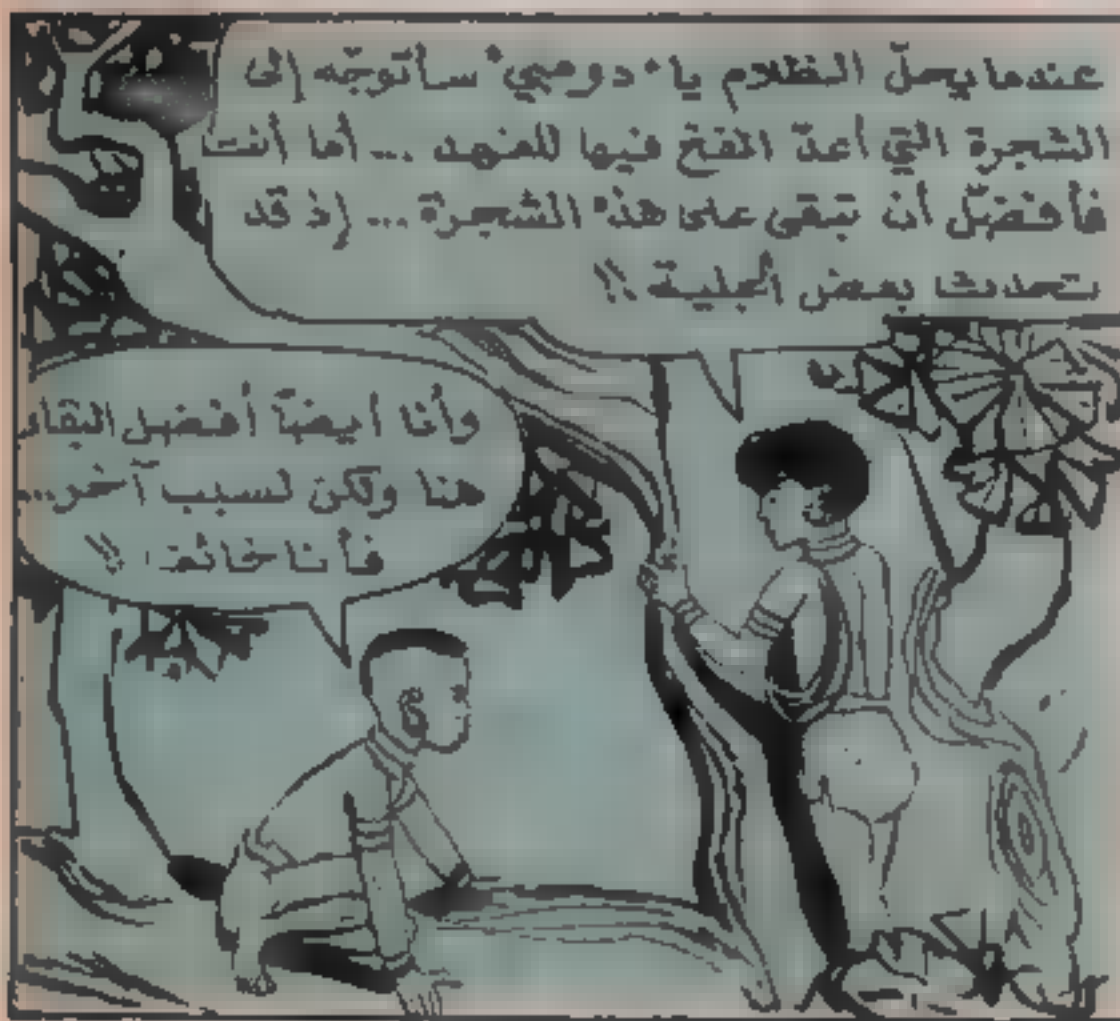 عندما يحلّ الظلام يا "دومبي" سأتوجّه إلى
الشجرة التي أعدّ الفخ فيها للفهد ... أما أنت
فأفضّل أن تبقى على هذه الشجرة ... إذ قد
تحدث بعض الجلبة !!
وأنا أيضاً أفضل البقاء
هنا ولكن لسبب آخر...
فأنا خائف !!